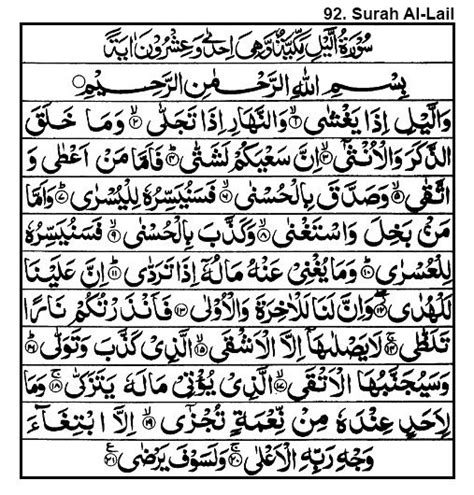 92. Surah Al-Lail
سُوْرَةُ الَّيْلِ مَكِّيَّةٌ وَّهِيَ اِحْدٰى وَعِشْرُوْنَ اٰيَةً
بِسْمِ اللهِ الرَّحْمٰنِ الرَّحِيْمِ
وَالَّيْلِ اِذَا يَغْشٰى ۝۱ وَالنَّهَارِ اِذَا تَجَلّٰى ۝۲ وَمَا خَلَقَ
الذَّكَرَ وَالْاُنْثٰٓى ۝۳ اِنَّ سَعْيَكُمْ لَشَتّٰى ۝۴ فَاَمَّا مَنْ اَعْطٰى وَ
اتَّقٰى ۝۵ وَصَدَّقَ بِالْحُسْنٰى ۝۶ فَسَنُيَسِّرُهٗ لِلْيُسْرٰى ۝۷ وَاَمَّا
مَنْۢ بَخِلَ وَاسْتَغْنٰى ۝۸ وَكَذَّبَ بِالْحُسْنٰى ۝۹ فَسَنُيَسِّرُهٗ
لِلْعُسْرٰى ۝۱۰ وَمَا يُغْنِيْ عَنْهُ مَالُهٗٓ اِذَا تَرَدّٰى ۝۱۱ اِنَّ عَلَيْنَا
لَلْهُدٰى ۝۱۲ وَاِنَّ لَنَا لَلْاٰخِرَةَ وَالْاُوْلٰى ۝۱۳ فَاَنْذَرْتُكُمْ نَارًا
تَلَظّٰى ۝۱۴ لَا يَصْلٰىهَآ اِلَّا الْاَشْقَى ۝۱۵ الَّذِيْ كَذَّبَ وَتَوَلّٰى ۝۱۶
وَسَيُجَنَّبُهَا الْاَتْقَى ۝۱۷ الَّذِيْ يُؤْتِيْ مَالَهٗ يَتَزَكّٰى ۝۱۸ وَمَا
لِاَحَدٍ عِنْدَهٗ مِنْ نِّعْمَةٍ تُجْزٰٓى ۝۱۹ اِلَّا ابْتِغَآءَ
وَجْهِ رَبِّهِ الْاَعْلٰى ۝۲۰ وَلَسَوْفَ يَرْضٰى ۝۲۱